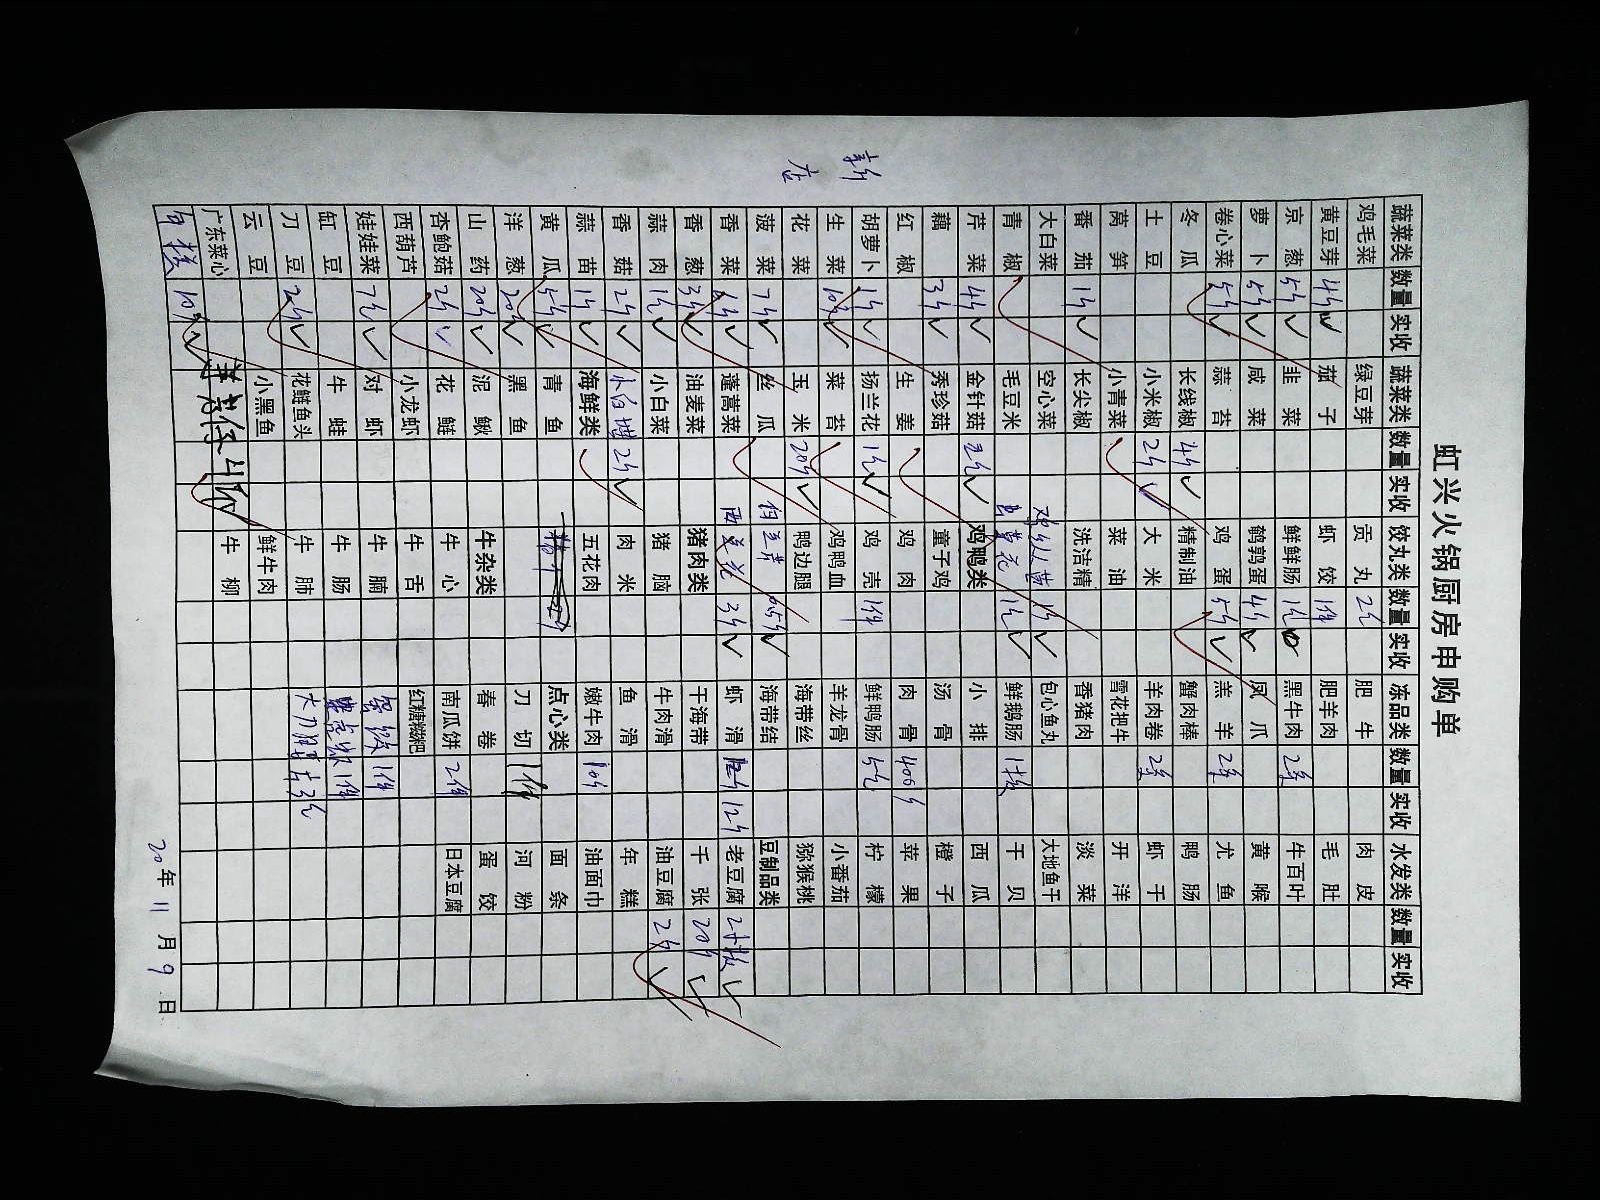 虹兴火锅厨房申购单
新店
蔬菜类 数量 实收 蔬菜类 数量 实收 饺丸类 数量 实收 冻品类 数量 实收 水发类 数量 实收
鸡毛菜 绿豆芽 贡丸 2 肥牛 肉皮
黄豆芽 4斤 茄子 虾饺 1件 肥羊肉 毛肚
京葱 5斤 韭菜 鲜鲜肠 黑牛肉 2条 牛百叶
萝卜 5斤 咸菜 鹌鹑蛋 4斤 凤爪 黄喉
卷心菜 5斤 蒜苔 鸡蛋 5斤 羔羊 2条 尤鱼
冬瓜 长线椒 4斤 精制油 蟹肉棒 鸭肠
土豆 小米椒 2斤 大米 羊肉卷 2条 虾干
莴笋 小青菜 菜油 雪花把牛 开洋
番茄 1斤 长尖椒 洗洁精 香猪肉 淡菜
大白菜 空心菜 包心鱼丸 大地鱼干
青椒 毛豆米 鲜鹅肠 1板 干贝
芹菜 4斤 金针菇 鸡鸭类 小排 西瓜
藕 3斤 秀珍菇 童子鸡 汤骨 橙子
红椒 生姜 鸡肉 肉骨 40斤 苹果
胡萝卜 1斤 扬兰花 1斤 鸡壳 1件 鲜鸭肠 5 柠檬
生菜 10斤 菜苔 鸡鸭血 羊龙骨 小番茄
花菜 玉米 20斤 鸭边腿 海带丝 猕猴桃
菠菜 7斤 丝瓜 海带结 豆制品类
香菜 蓬蒿菜 西兰花 3斤 虾滑 12斤 老豆腐 2板
香葱 3斤 油麦菜 猪肉类 干海带 千张 20斤
蒜肉 1斤 小白菜 猪脑 牛肉滑 油豆腐 2斤
香菇 2斤 2斤 肉米 鱼滑 年糕
蒜苗 1斤 海鲜类 五花肉 嫩牛肉 10斤 油面巾
黄瓜 5斤 青鱼 点心类 面条
洋葱 20斤 黑鱼 刀切 1件 河粉
山药 20斤 泥鳅 牛杂类 春卷 蛋饺
杏鲍菇 2斤 花鲢 牛心 南瓜饼 2件 日本豆腐
西葫芦 小龙虾 牛舌 红糖糍粑
娃娃菜 7斤 对虾 牛腩 1件
缸豆 牛蛙 牛肠 1件
刀豆 2斤 花鲢鱼头 牛肺
云豆 小黑鱼 鲜牛肉
广东菜心 牛柳
10斤
20年11月9日